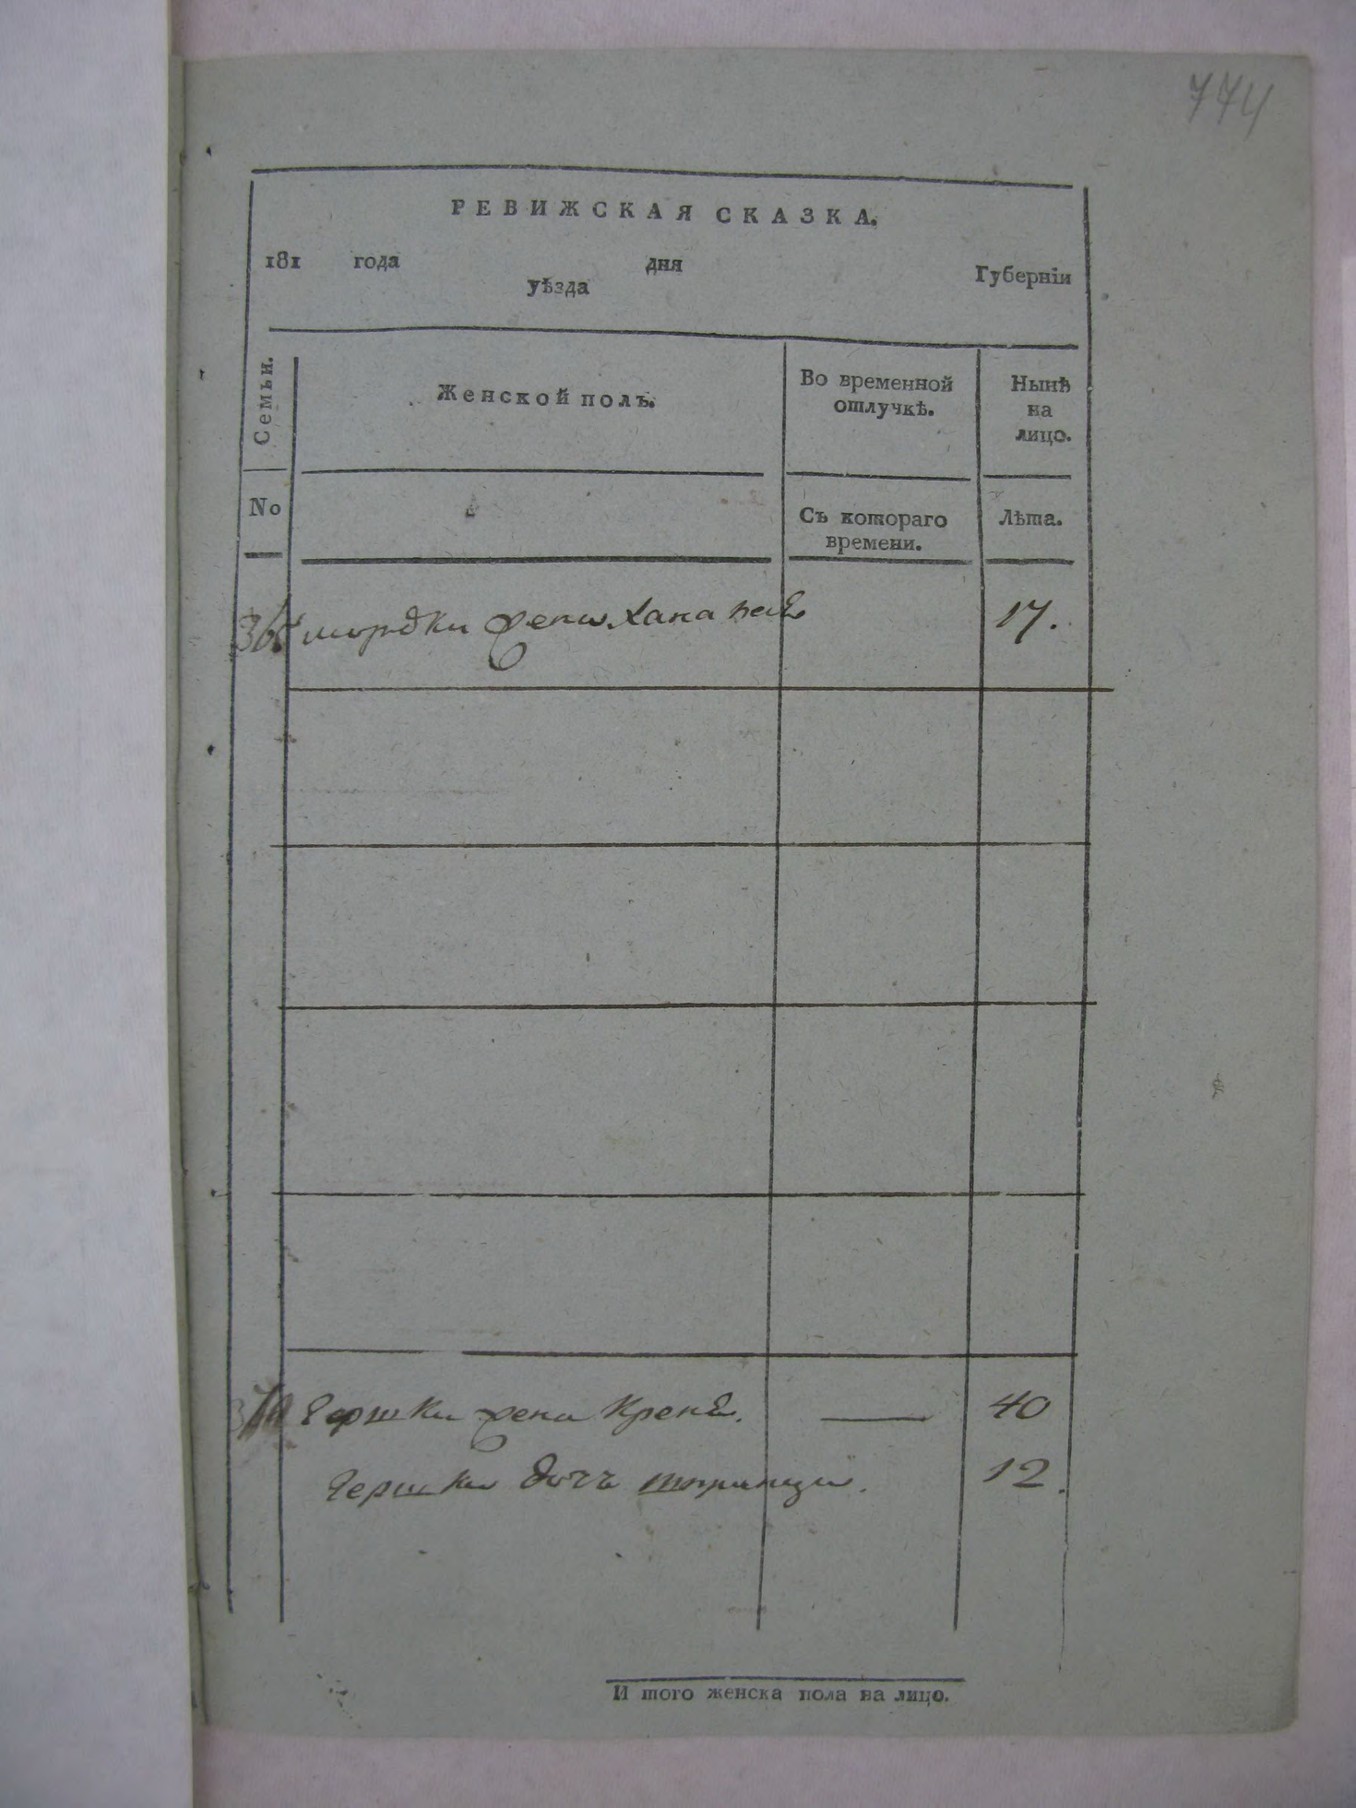 774
РЕВИЖСКАЯ СКАЗКА.
181 года дня Губерніи
уѣзда
Семьи.
Женской полъ.
Во временной
отлучкѣ.
Нынѣ
на
лицо.
No
Съ котораго
времени.
Лѣта.
мордки жена Хана 17.
Гершки жена Крене. — 40
Гершки дочь 12.
И того женска пола на лицо.